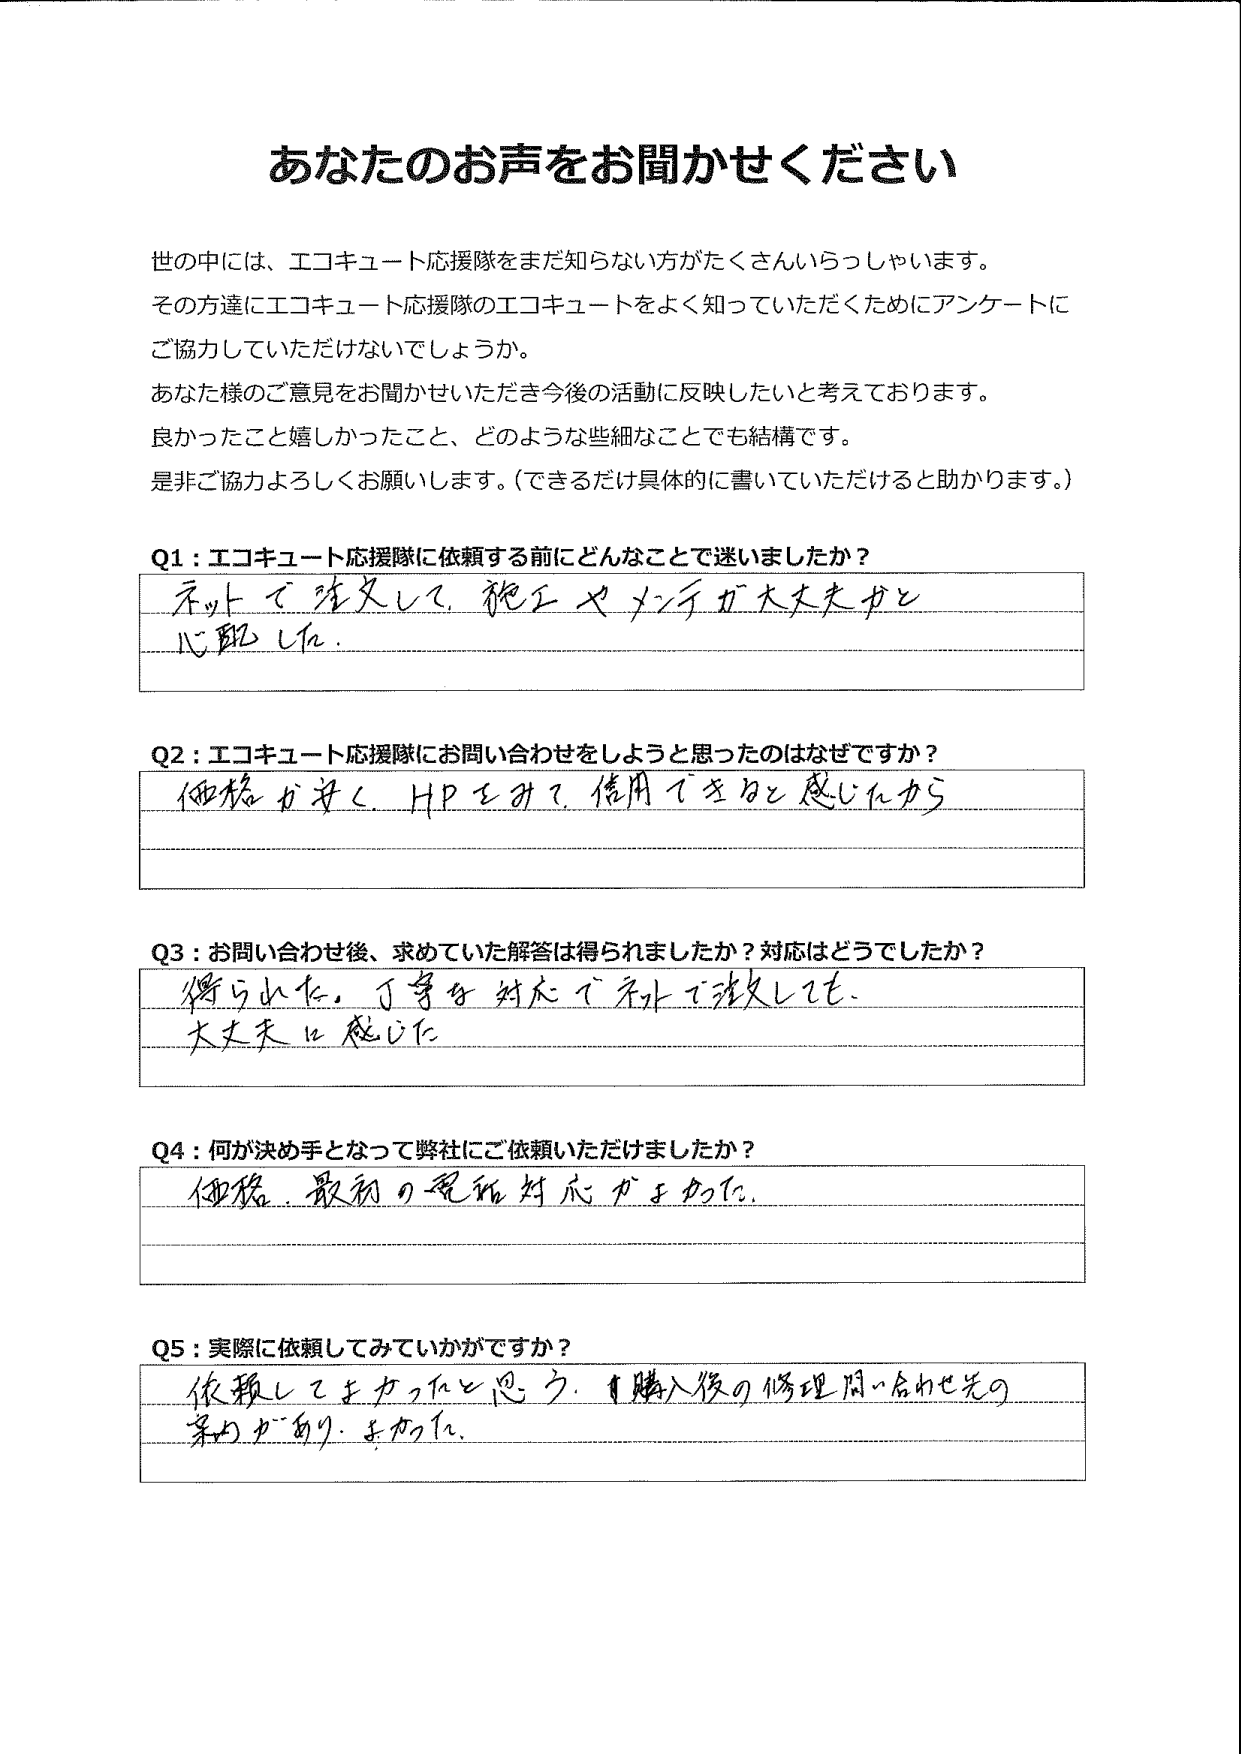 あなたのお声をお聞かせください
世の中には、エコキュート応援隊をまだ知らない方がたくさんいらっしゃいます。
その方達にエコキュート応援隊のエコキュートをよく知っていただくためにアンケートに
ご協力していただけないでしょうか。
あなた様のご意見をお聞かせいただき今後の活動に反映したいと考えております。
良かったこと嬉しかったこと、どのような些細なことでも結構です。
是非ご協力よろしくお願いします。(できるだけ具体的に書いていただけると助かります。)
Q1：エコキュート応援隊に依頼する前にどんなことで迷いましたか？
ネットで注文して、施工やメンテが大丈夫かと
心配した.
Q2：エコキュート応援隊にお問い合わせをしようと思ったのはなぜですか？
価格が安く、HPをみて、信用できると感じたから
Q3：お問い合わせ後、求めていた解答は得られましたか？対応はどうでしたか？
得られた。丁寧な対応でネットで注文しても、
大丈夫に感じた
Q4：何が決め手となって弊社にご依頼いただけましたか？
価格、最初の電話対応がよかった.
Q5：実際に依頼してみていかがですか？
依頼してよかったと思う. 購入後の修理問い合わせ先の
案内があり、よかった.